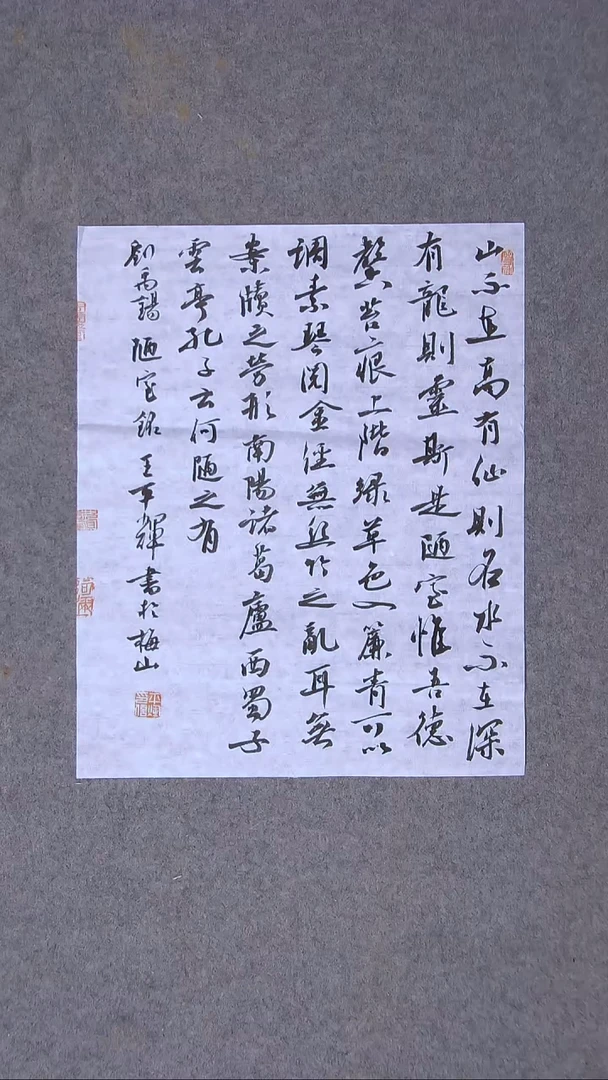 山不在高有仙則名水不在深
有龍則靈斯是陋室惟吾德
馨苔痕上階綠草色入簾青可以
調素琴閱金經無絲竹之亂耳無
案牘之勞形南陽諸葛廬西蜀子
雲亭孔子云何陋之有
劉禹錫陋室銘王平輝書於梅山